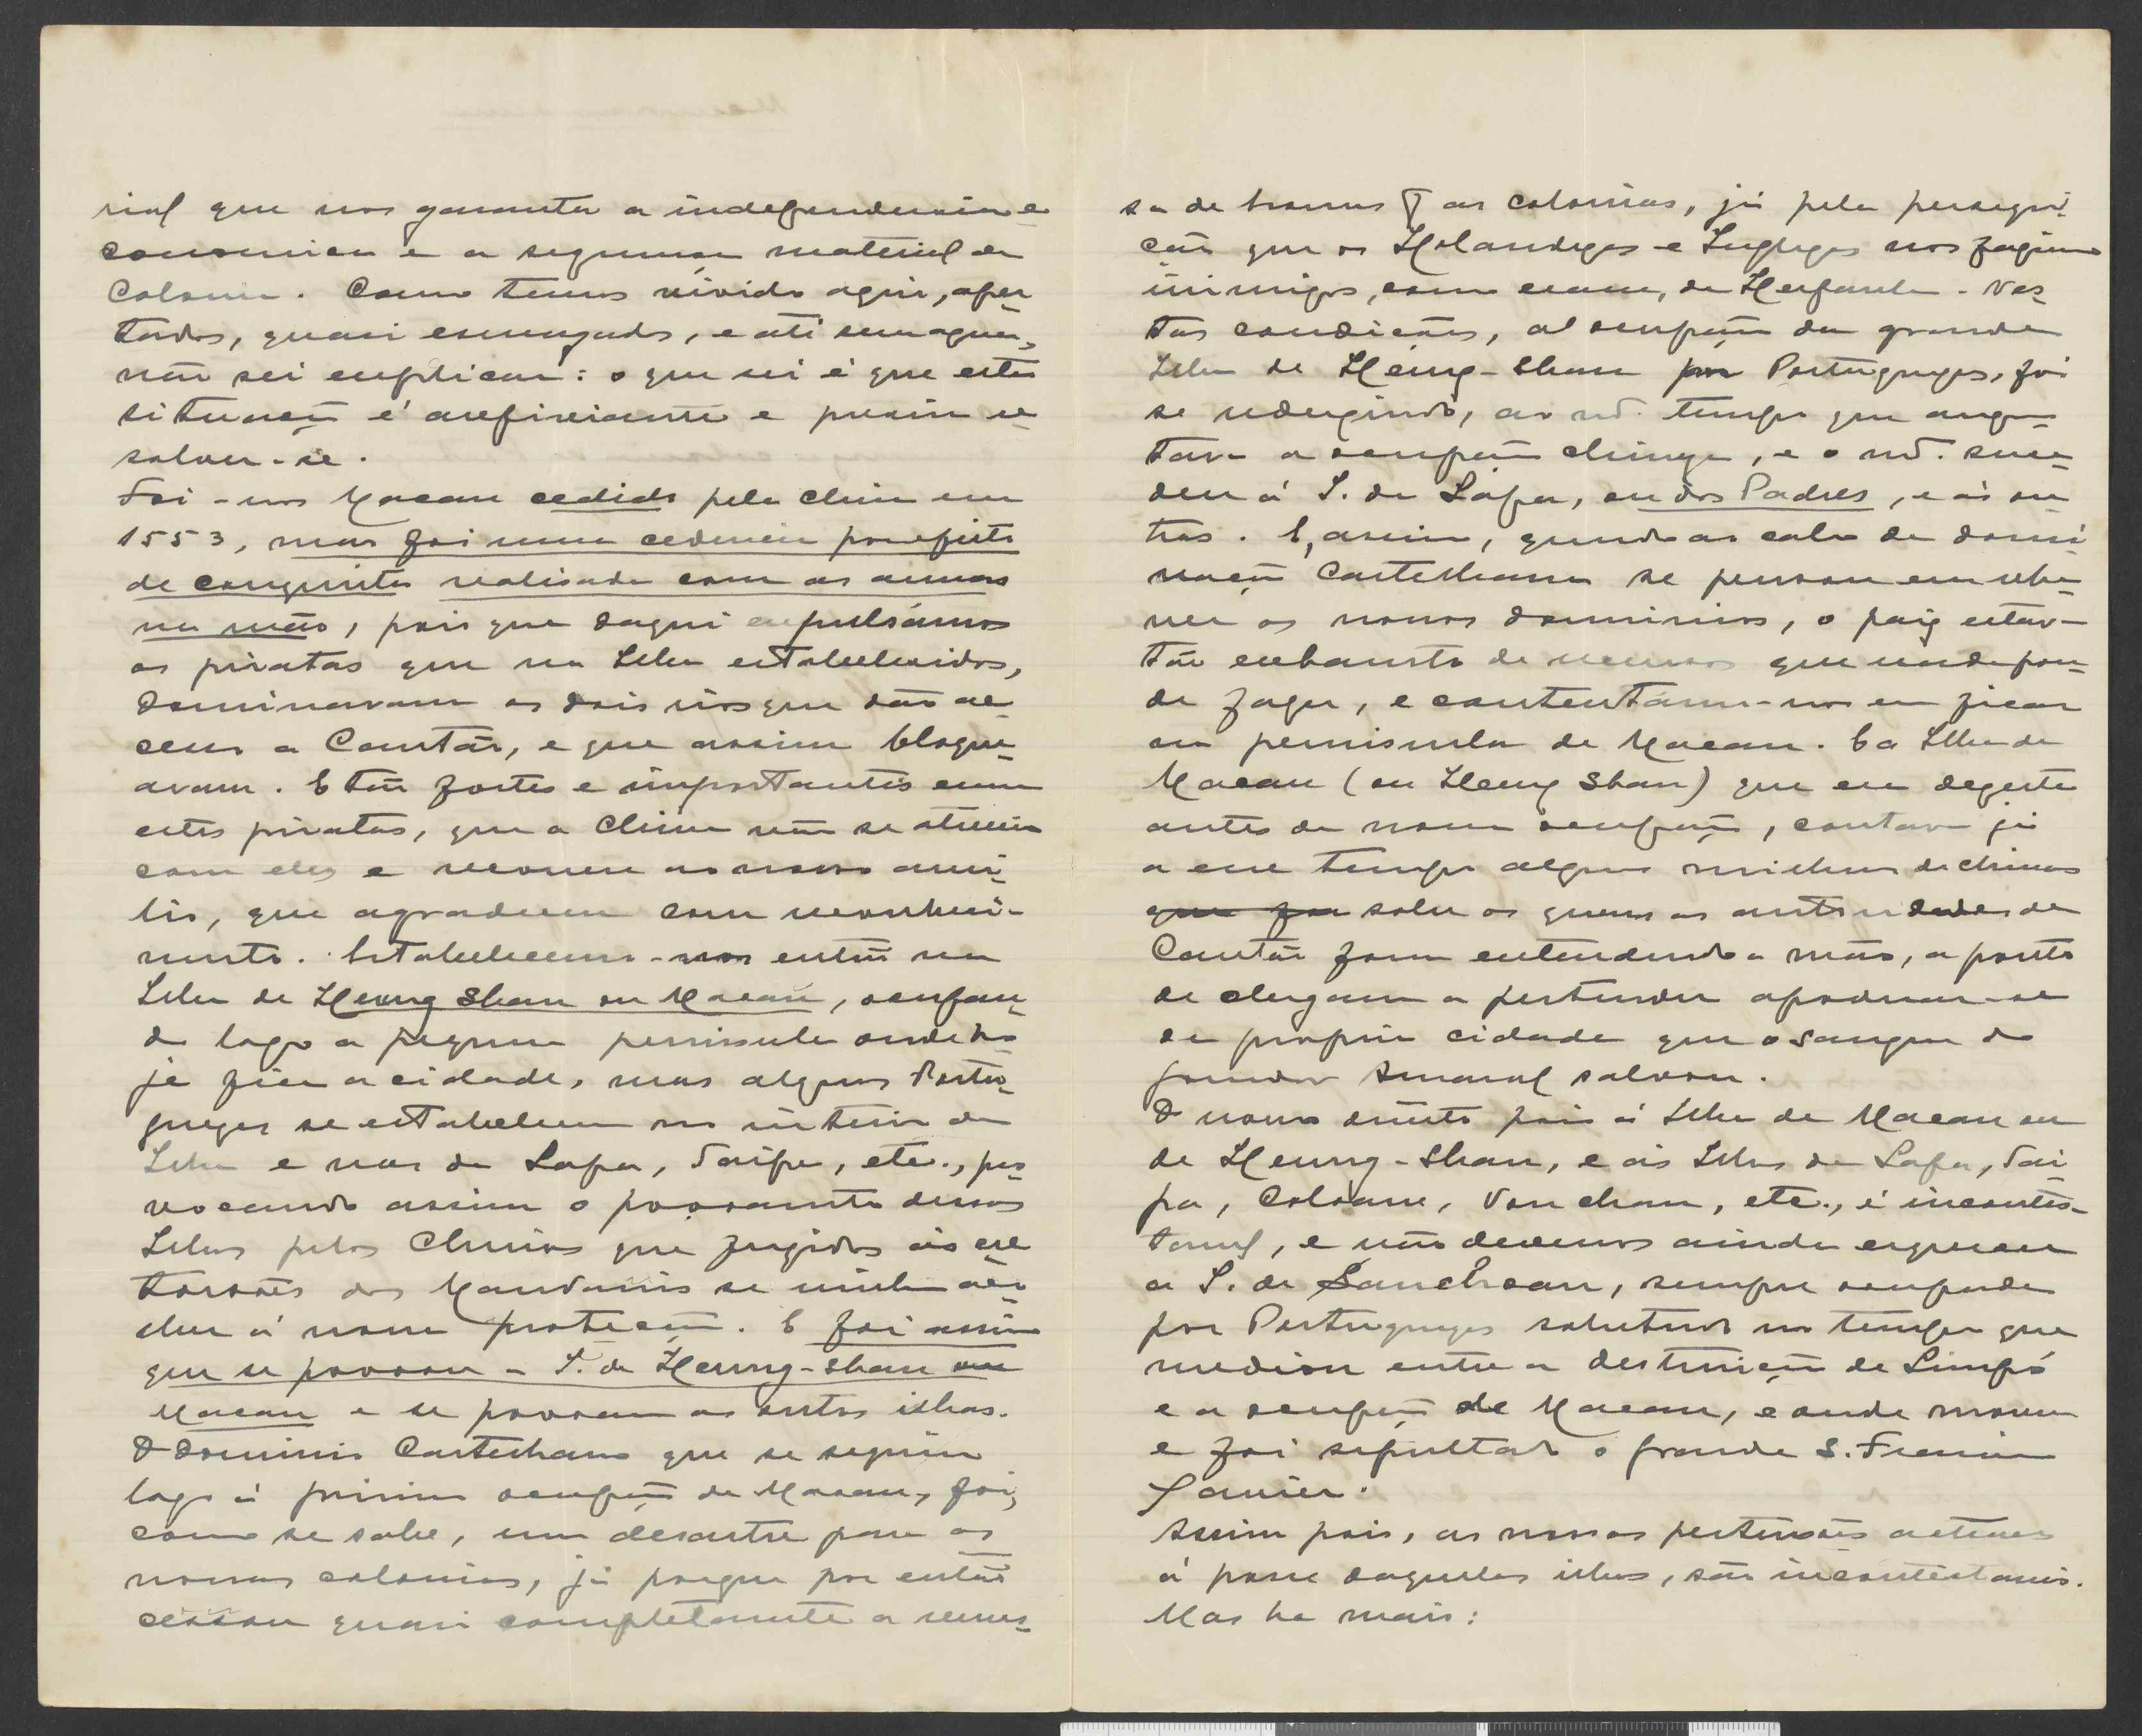 rial que nos garanta a independencia e
conomica e a segurança material da
Colonia. Como temos vivido aqui, aper
tados, quasi esmagados, e até sem agua,
não sei explicar: o que sei é que esta
situação é asfixiante e precisa re
solver-se.
Foi-nos Macau cedida pela China em
1553, mas foi uma cedencia por efeito
de conquista realisada com as armas
na mão, pois que daqui expulsámos
os piratas que na Ilha estabelecidos,
dominavam os dois rios que dão ac
cesso a Cantão, e que assim bloque
avam. E tão fortes e importantes eram
estes piratas, que a China não se atrevia
com eles e recorreu ao nosso auxi
lio, que agradeceu com reconheci-
mento. Estabelecemo-nos então na
Ilha de Heung Shan ou Macau, ocupan
do logo a pequena peninsula onde ho
je fica a cidade, mas alguns Portu
guezes se estabelecem no interior da
Ilha e nas da Lapa, Taipa, etc., pro
vocando assim o povoamento dessas
Ilhas pelos Chinas que fugidos ás ex
torsões dos Mandarins se vinham aco
lher á nossa protecção. E foi assim
que se povoou a I. de Heung-Shan ou
Macau e se povoaram as outras ilhas.
O dominio Castelhano que se seguiu
logo á primeira ocupação de Macau, foi,
como se sabe, um desastre para as
nossas colonias, já porque por então
cessou quasi completamente a remes
sa de homens pª as colonias, já pela persegui
ção que os Holandezes e Inglezes nos faziam
inimigos, como eram, da Hespanha. Nes
tas condições, a ocupação da grande
Ilha de Heung-Shan por Portuguezes, foi
se reduzindo, ao mº tempo que aumen
tava a ocupação chineza, e o mº. suce
deu á I. da Lapa, ou dos Padres, e ás ou
tras. E, assim, quando ao cabo da domi
nação Castelhana se pensou em rehe
ver os nossos dominios, o paiz estava
tão exhausto de recursos que nada pou
de fazer, e contentámo-nos em ficar
na peninsula de Macau. E a Ilha de
Macau (ou Heung Shan) que era dezerta
antes da nossa ocupação, contava já
a esse tempo alguns milhares de chinas
sobre os quaes as autoridades de
Cantão foram estendendo a mão, a ponto
de chegarem a pertender apoderar-se
da propria cidade que o sangue do
Amaral salvou.
O nosso direito pois á Ilha de Macau ou
de Heung-Shan, e ás Ilhas da Lapa, Tai
pa, Coloane, Von cham, etc., é incontes-
tavel, e não devemos ainda esquecer
a I. de Sanchoan, sempre ocupada
por Portuguezes sobretudo no tempo que
mediou entre a destruição de Liampó
e a ocupação de Macau, e onde morreu
e foi sepultado o grande S. Francisco
Xavier.
Assim pois, as nossas pertensões actuaes
á posse daquelas ilhas, são incontestaveis.
Mas ha mais: